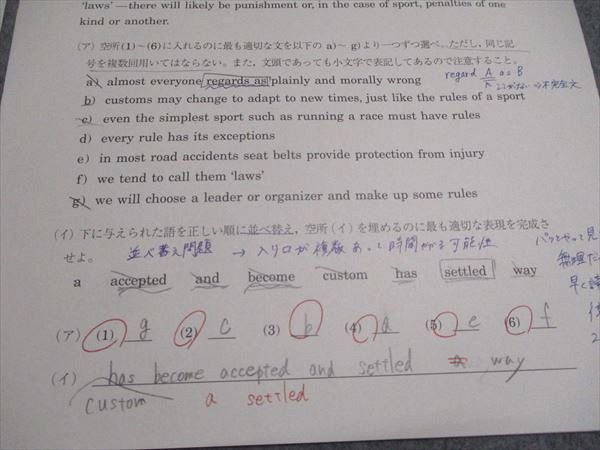 'laws'—there will likely be punishment or, in the case of sport, penalties of one
kind or another.
(ア) 空所(1)～(6)に入れるのに最も適切な文を以下の a)～ g)より一つずつ選べ。ただし，同じ記
号を複数回用いてはならない。また，文頭であっても小文字で表記してあるので注意すること。
a) almost everyone regards as plainly and morally wrong
regard A as B
b) customs may change to adapt to new times, just like the rules of a sport
c) even the simplest sport such as running a race must have rules
d) every rule has its exceptions
e) in most road accidents seat belts provide protection from injury
f) we tend to call them 'laws'
g) we will choose a leader or organizer and make up some rules
(イ) 下に与えられた語を正しい順に並べ替え，空所（イ）を埋めるのに最も適切な表現を完成さ
せよ。
並べ替え問題 → 入り口が複数あって時間かかる可能性
a accepted and become custom has settled way
(ア) (1) g (2) c (3) b (4) a (5) e (6) f
(イ) has become accepted and settled way
custom a settled